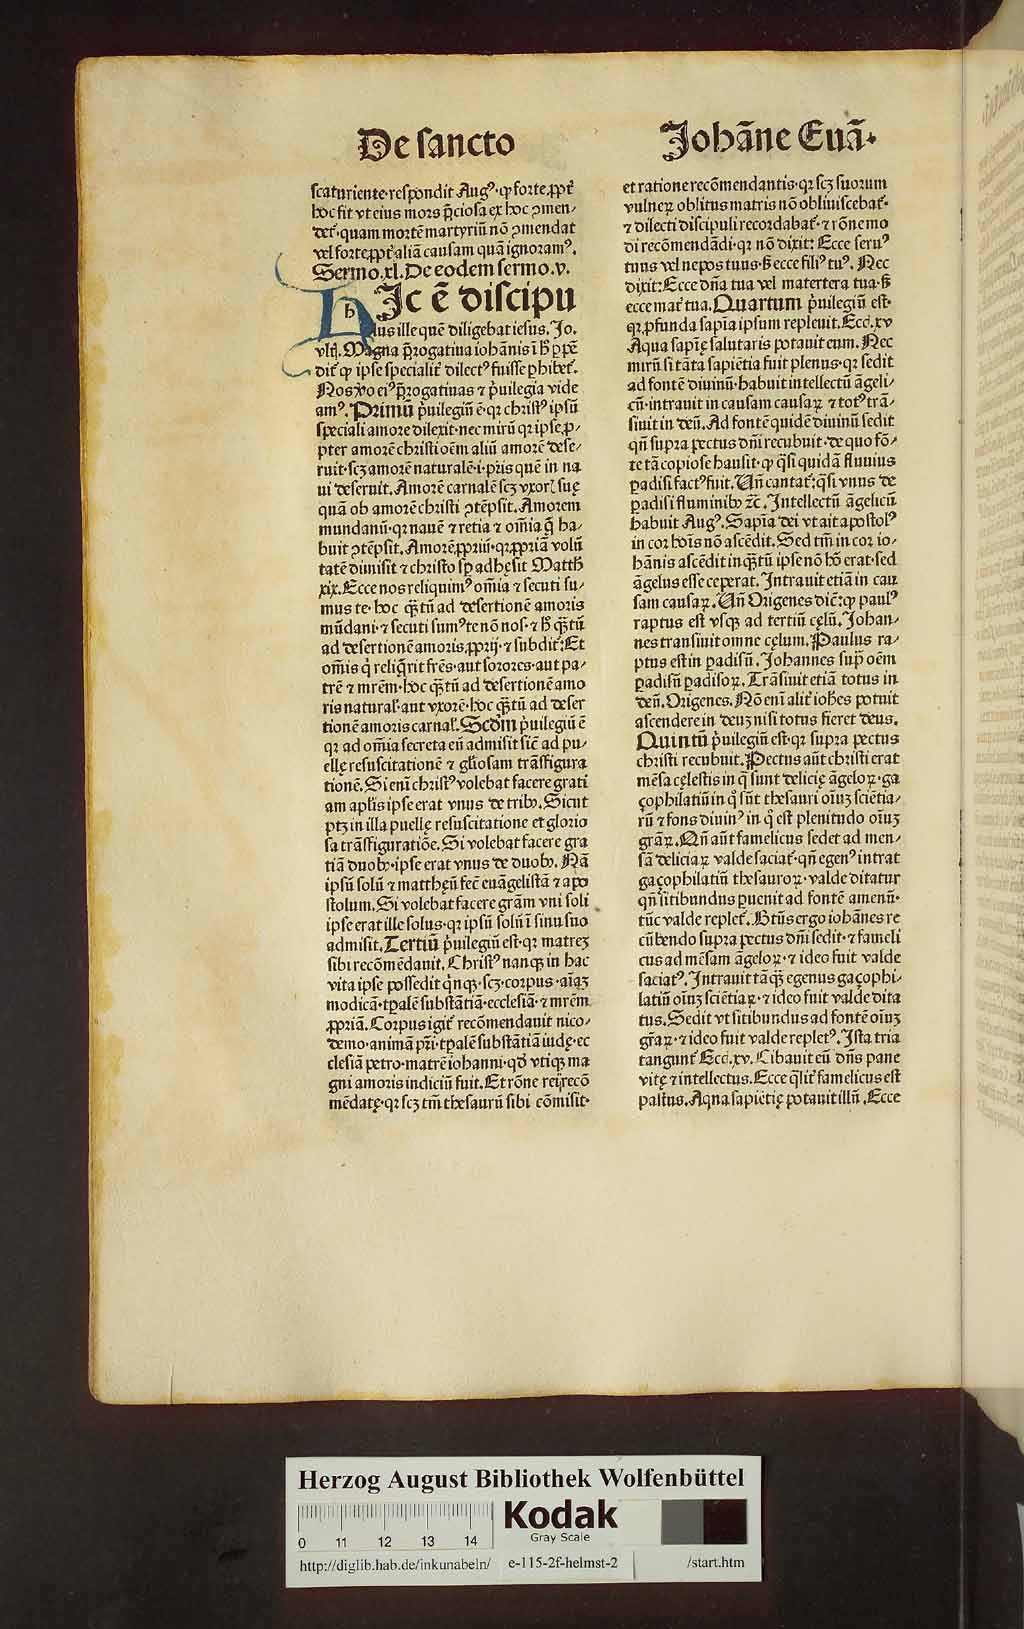 De sancto
Johãne Euã.
scaturiente·respondit Augꝰ·ꝙ forte ꝓpt̃
hoc fit vt eius mors p̃ciosa ex hoc ↄmen⸗
det̃·quam mortẽ martyriũ nõ ↄmendat
vel forte ꝓpt̃ aliã causam quã ignoramꝰ.
Sermo.xl. De eodem sermo.v.
h Jc ẽ discipu
lus ille quẽ diligebat iesus. Jo.
vltĩ. Magna p̃rogatiua iohãnis ĩ h̃ ꝑpẽ
dit̃ ꝙ ipse specialit̃ dilectꝰ fuisse ꝑhibet̃.
Nos ṽo eiꝰ p̃rogatiuas ⁊ p̃uilegia vide
amꝰ. Primũ p̃uilegiũ ẽ·qr christꝰ ipsũ
speciali amore dilexit·nec mirũ qr ipse ꝓ⸗
pter amorẽ christi oẽm aliũ amorẽ dese⸗
ruit·scꝫ amorẽ naturalẽ·i·pr̃is quẽ in na
ui deseruit. Amorẽ carnalẽ scꝫ vxorꝭ suę
quã ob amorẽ christi ↄtẽpsit. Amorem
mundanũ·qr nauẽ ⁊ retia ⁊ om̃ia q̃ ha⸗
buit ↄtẽpsit. Amorẽ ꝓpriũ·qr ꝓpriã volũ
tatẽ dimisit ⁊ christo sꝑ adhęsit Matth̃
xix. Ecce nos reliquimꝰ om̃ia ⁊ secuti su⸗
mus te·hoc qꝫ̃tũ ad desertionẽ amoris
mũdani·⁊ secuti sumꝰ te nõ nos·⁊ h̃ qꝫ̃tũ
ad desertionẽ amoris ꝓprij·⁊ subdit̃: Et
om̃is q̇ reliq̃rit fr̃es·aut sorores·aut pa⸗
trẽ ⁊ mr̃em·hoc qꝫ̃tũ ad desertionẽ amo
ris natural̃·aut vxorẽ·hoc qꝫ̃tũ ad deser
tionẽ amoris carnal̃. Scd̃m p̃uilegiũ ẽ
qr ad om̃ia secreta eũ admisit sic̃ ad pu⸗
ellę resuscitationẽ ⁊ gl̃iosam trãsfigura
tionẽ. Si eni͂ christꝰ volebat facere grati
am apl̃is ipse erat vnus de tribꝰ. Sicut
ptꝫ in illa puellę resuscitatione et glorio
sa trãsfiguratiõe. Si volebat facere gra
tiã duobꝰ·ipse erat vnus de duobꝰ. Nã
ipsũ solũ ⁊ matthęũ fec̃ euãgelistã ⁊ apo
stolum. Si volebat facere gr̃am vni soli
ipse erat ille solus·qr ipsũ solũ ĩ sinu suo
admisit. Tertiũ p̃uilegiũ est·qr matreꝫ
sibi recõmẽdauit. Christꝰ nanqꝫ in hac
vita ipse possedit q̇nqꝫ·scꝫ·corpus·aĩaꝫ
modicã·tp̃alẽ substãtiã·ecclesiã·⁊ mr̃em
ꝓpriã. Corpus igit̃ recõmendauit nico⸗
demo·animã pr̃i·tp̃alẽ substãtiã iudę·ec
clesiã petro·matrẽ iohanni·qd̃ vtiqꝫ ma
gni amoris indiciũ fuit. Et rõne rei recõ
mẽdatę·qr scꝫ tm̃ thesaurũ sibi cõmisit·
et ratione recõmendantis·qr scꝫ suorum
vulneꝝ oblitus matris nõ obliuiscebat̃·
⁊ dilecti discipuli recordabat̃·⁊ rõne mo
di recõmendãdi·qr nõ dixit: Ecce seruꝰ
tuus vel nepos tuus·ß ecce filiꝰ tuꝰ. Nec
dixit: Ecce dña tua vel matertera tua·ß
ecce mat̃ tua. Quartum p̃uilegiũ est·
qr ꝓfunda sapĩa ipsum repleuit. Ecc̃.xv
Aqua sapię̃ salutaris potauit eum. Nec
mirũ si tãta sapiẽtia fuit plenus·qr sedit
ad fontẽ diuinũ·habuit intellectũ ãgeli⸗
cũ·intrauit in causam causaꝝ ⁊ totꝰ trã⸗
siuit in deũ. Ad fontẽ quidẽ diuinũ sedit
qñ supra pectus dñi recubuit·de quo fõ⸗
te tã copiose hausit·ꝙ q̃si quidã fluuius
ꝑadisi factꝰ fuit. Uñ cantat̃: q̃si vnus de
ꝑadisi fluminibꝰ ⁊c̃. Intellectũ ãgelicũ
habuit Augꝰ. Sapĩa dei vt ait apostolꝰ
in cor hoĩs nõ ascẽdit. Sed tm̃ in cor io⸗
hãnis ascẽdit inqꝫ̃tũ ipse nõ hõ erat·sed
ãgelus esse ceperat. Intrauit etiã in cau
sam causaꝝ. Uñ Origenes dic̃: ꝙ paulꝰ
raptus est vsqꝫ ad tertiũ cęlũ. Johan⸗
nes transiuit omne cęlum. Paulus ra⸗
ptus est in ꝑadisũ. Johannes sup̃ oẽm
ꝑadisũ ꝑadisoꝝ. Trãsiuit etiã totus in
deũ. Origenes. Nõ eni͂ alit̃ ioh̃es potuit
ascendere in deuꝫ nisi totus fieret deus.
Quintũ p̃uilegiũ est·qr supra pectus
christi recubuit. Pectus aũt christi erat
mẽsa cęlestis in q̃ sunt delicię ãgeloꝝ·ga
çophilatiũ in q̊ sũt thesauri oĩuꝫ sciẽtia⸗
rũ ⁊ fons diuinꝰ in q̊ est plenitudo oĩuꝫ
gr̃aꝝ. Qñ aũt famelicus sedet ad men⸗
sã deliciaꝝ valde saciat̃·qñ egenꝰ intrat
gaçophilatiũ thesauroꝝ·valde ditatur
qñ sitibundus ꝑuenit ad fontẽ amenũ·
tũc valde replet̃. Bt̃us ergo iohãnes re
cũbendo supra pectus dñi sedit·⁊ fameli
cus ad mẽsam ãgeloꝝ·⁊ ideo fuit valde
saciatꝰ. Intrauit tãqꝫ egenus gaçophi⸗
latiũ oĩuꝫ sciẽtiaꝝ·⁊ ideo fuit valde dita
tus. Sedit vt sitibundus ad fontẽ oĩuꝫ
gr̃aꝝ·⁊ ideo fuit valde repletꝰ. Ista tria
tangunt̃ Ecc̃.xv. Cibauit eũ dñs pane
vitę ⁊ intellectus. Ecce q̃lit̃ famelicus est
pastus. Aqua sapiẽtię potauit illũ. Ecce
Herzog August Bibliothek Wolfenbüttel
0 11 12 13 14
Kodak
Gray Scale
http://diglib.hab.de/inkunabeln/ e-115-2f-helmst-2 /start.htm